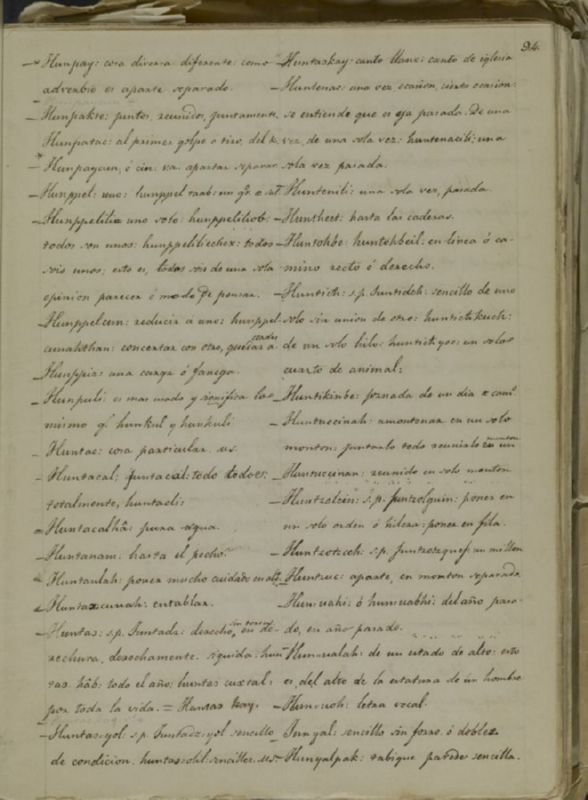 94.
Hunpay: cosa diversa diferente: como
adverbio es aparte separado.
Hunpakte: juntos, reunidos, juntamente
Hunpatac: al primer golpe o tiro, del
Hunpaycun, ó cin: va. apartar separar
Hunppel: uno: hunppel
Hunppelili uno solo: hunppelilob:
todos son unos: hunppeliliechex: todos
sois unos; esto es, todos sois de una sola
opinion parecer ó modo de pensar.
Hunppelcun: reducir a uno: hunppel
cunahthan: concertar con otro,
Hunppiz: una carga ó fanega.
Hunpuli: es mas usado y significa lo
mismo q.e hunkul y hunkuli
Huntac: cosa particular.
Huntacal: juntacal: todo todos:
totalmente, huntacli:
Huntacalhâ: pura agua.
Huntanam: hasta el pecho.
Huntanlah: poner mucho cuidado
cunah: entablar.
Huntas: s.p. Juntadz: derecho, sin torcer, en de-
rechura, derechamente. seguida: hun
tas hâb: todo el año; huntas cuxtal:
por toda la vida. = Huntas kay.
Huntas:ol: s.p. Juntadz:ol sencillo
de condicion. huntas:olil: sencillez
Huntaskay: canto llano: canto de iglesia
Huntenac: una vez, ocasion, cierta ocasion:
se entiende que es ya pasada. De una
vez, de una sola vez: huntenacili: una
sola vez pasada.
Huntenili: una sola vez, pasada.
Huntheet: hasta las caderas.
Huntohbe: huntohbeil: en linea ó ca-
mino recto ó derecho.
Huntich: s.p. Juntidch: sencillo de uno
solo sin union de otro: huntich kuch:
de un solo hilo: huntich yoc: un solo
cuarto de animal:
Huntikinbe: jornada de un dia
Huntuccinah: amontonar en un solo
monton: juntarlo todo reunirlo en un monton
Huntuccinan: reunido en solo monton
Huntzolcin: s.p. Juntzolquin: poner en
un solo orden ó hilera: poner en fila.
Huntzotzceh: s.p. Juntzotzquej un millon
Huntzuc: aparte, en monton separado
Hunuahi: ó hunuabhi: del año pasa-
do, en año pasado.
Hunualah: de un estado de alto: esto
es, del alto de la estatura de un hombre
Hunuoh: letra vocal.
Hunyal: sencillo sin forro, ó doblez
Hunyalpak: tabique pared sencilla.